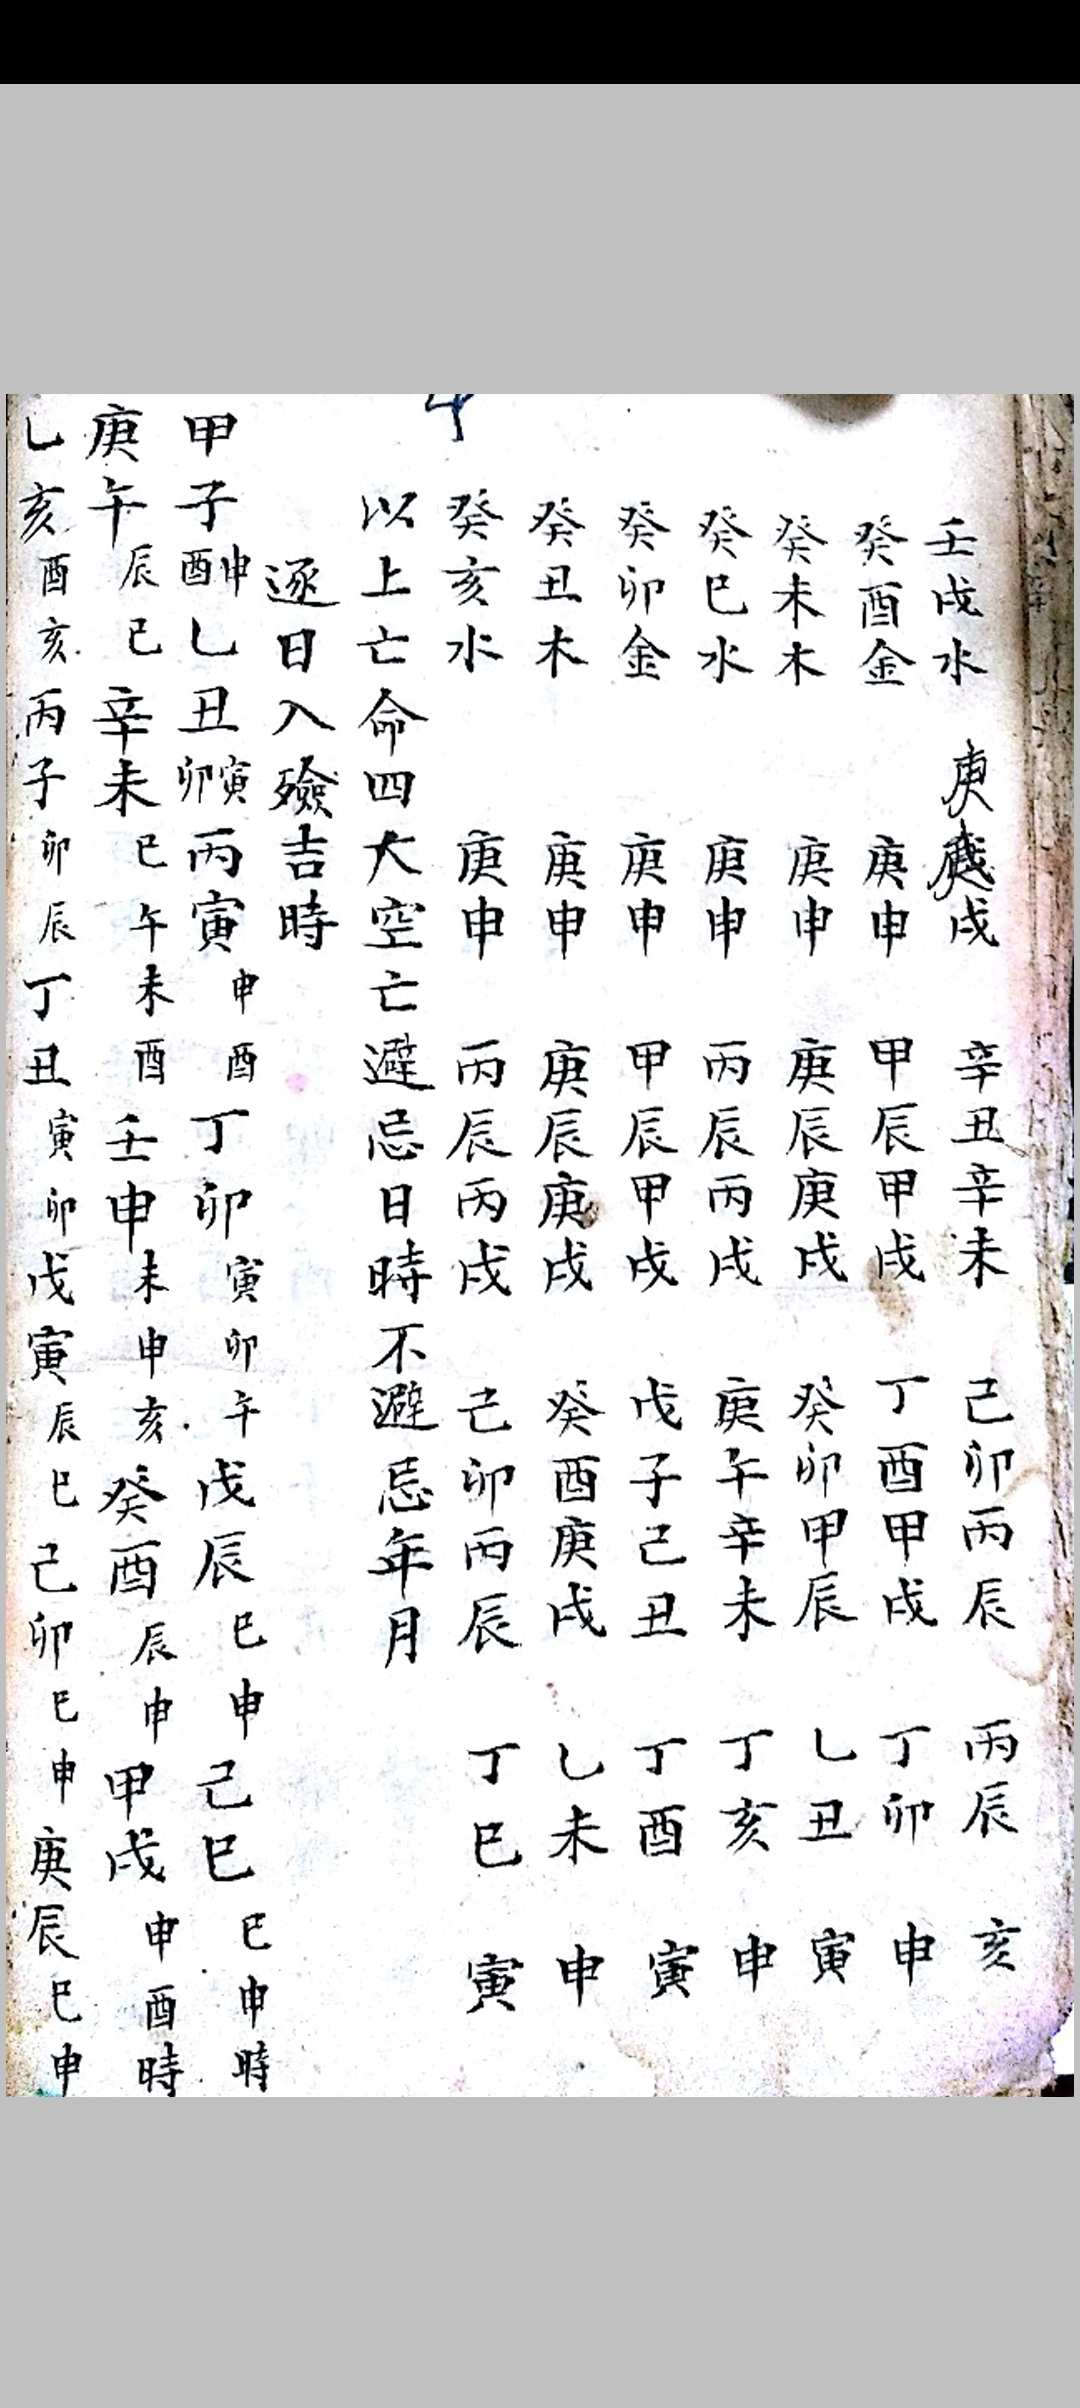 壬戌水 庚戌 辛丑辛未 己卯丙辰 丙辰 亥
癸酉金 庚申 甲辰甲戌 丁酉甲戌 丁卯 申
癸未木 庚申 庚辰庚戌 癸卯甲辰 乙丑 寅
癸巳水 庚申 丙辰丙戌 庚午辛未 丁亥 申
癸卯金 庚申 甲辰甲戌 戊子己丑 丁酉 寅
癸丑木 庚申 庚辰庚戌 癸酉庚戌 乙未 申
癸亥水 庚申 丙辰丙戌 己卯丙辰 丁巳 寅
以上亡命四大空亡避忌日時不避忌年月
逐日入殮吉時
甲子申酉乙丑寅卯丙寅申酉丁卯寅卯午戊辰巳申己巳巳申時
庚午辰巳辛未巳午未酉壬申未申亥癸酉辰申甲戌申酉時
乙亥酉亥丙子卯辰丁丑寅卯戊寅辰巳己卯巳申庚辰巳申